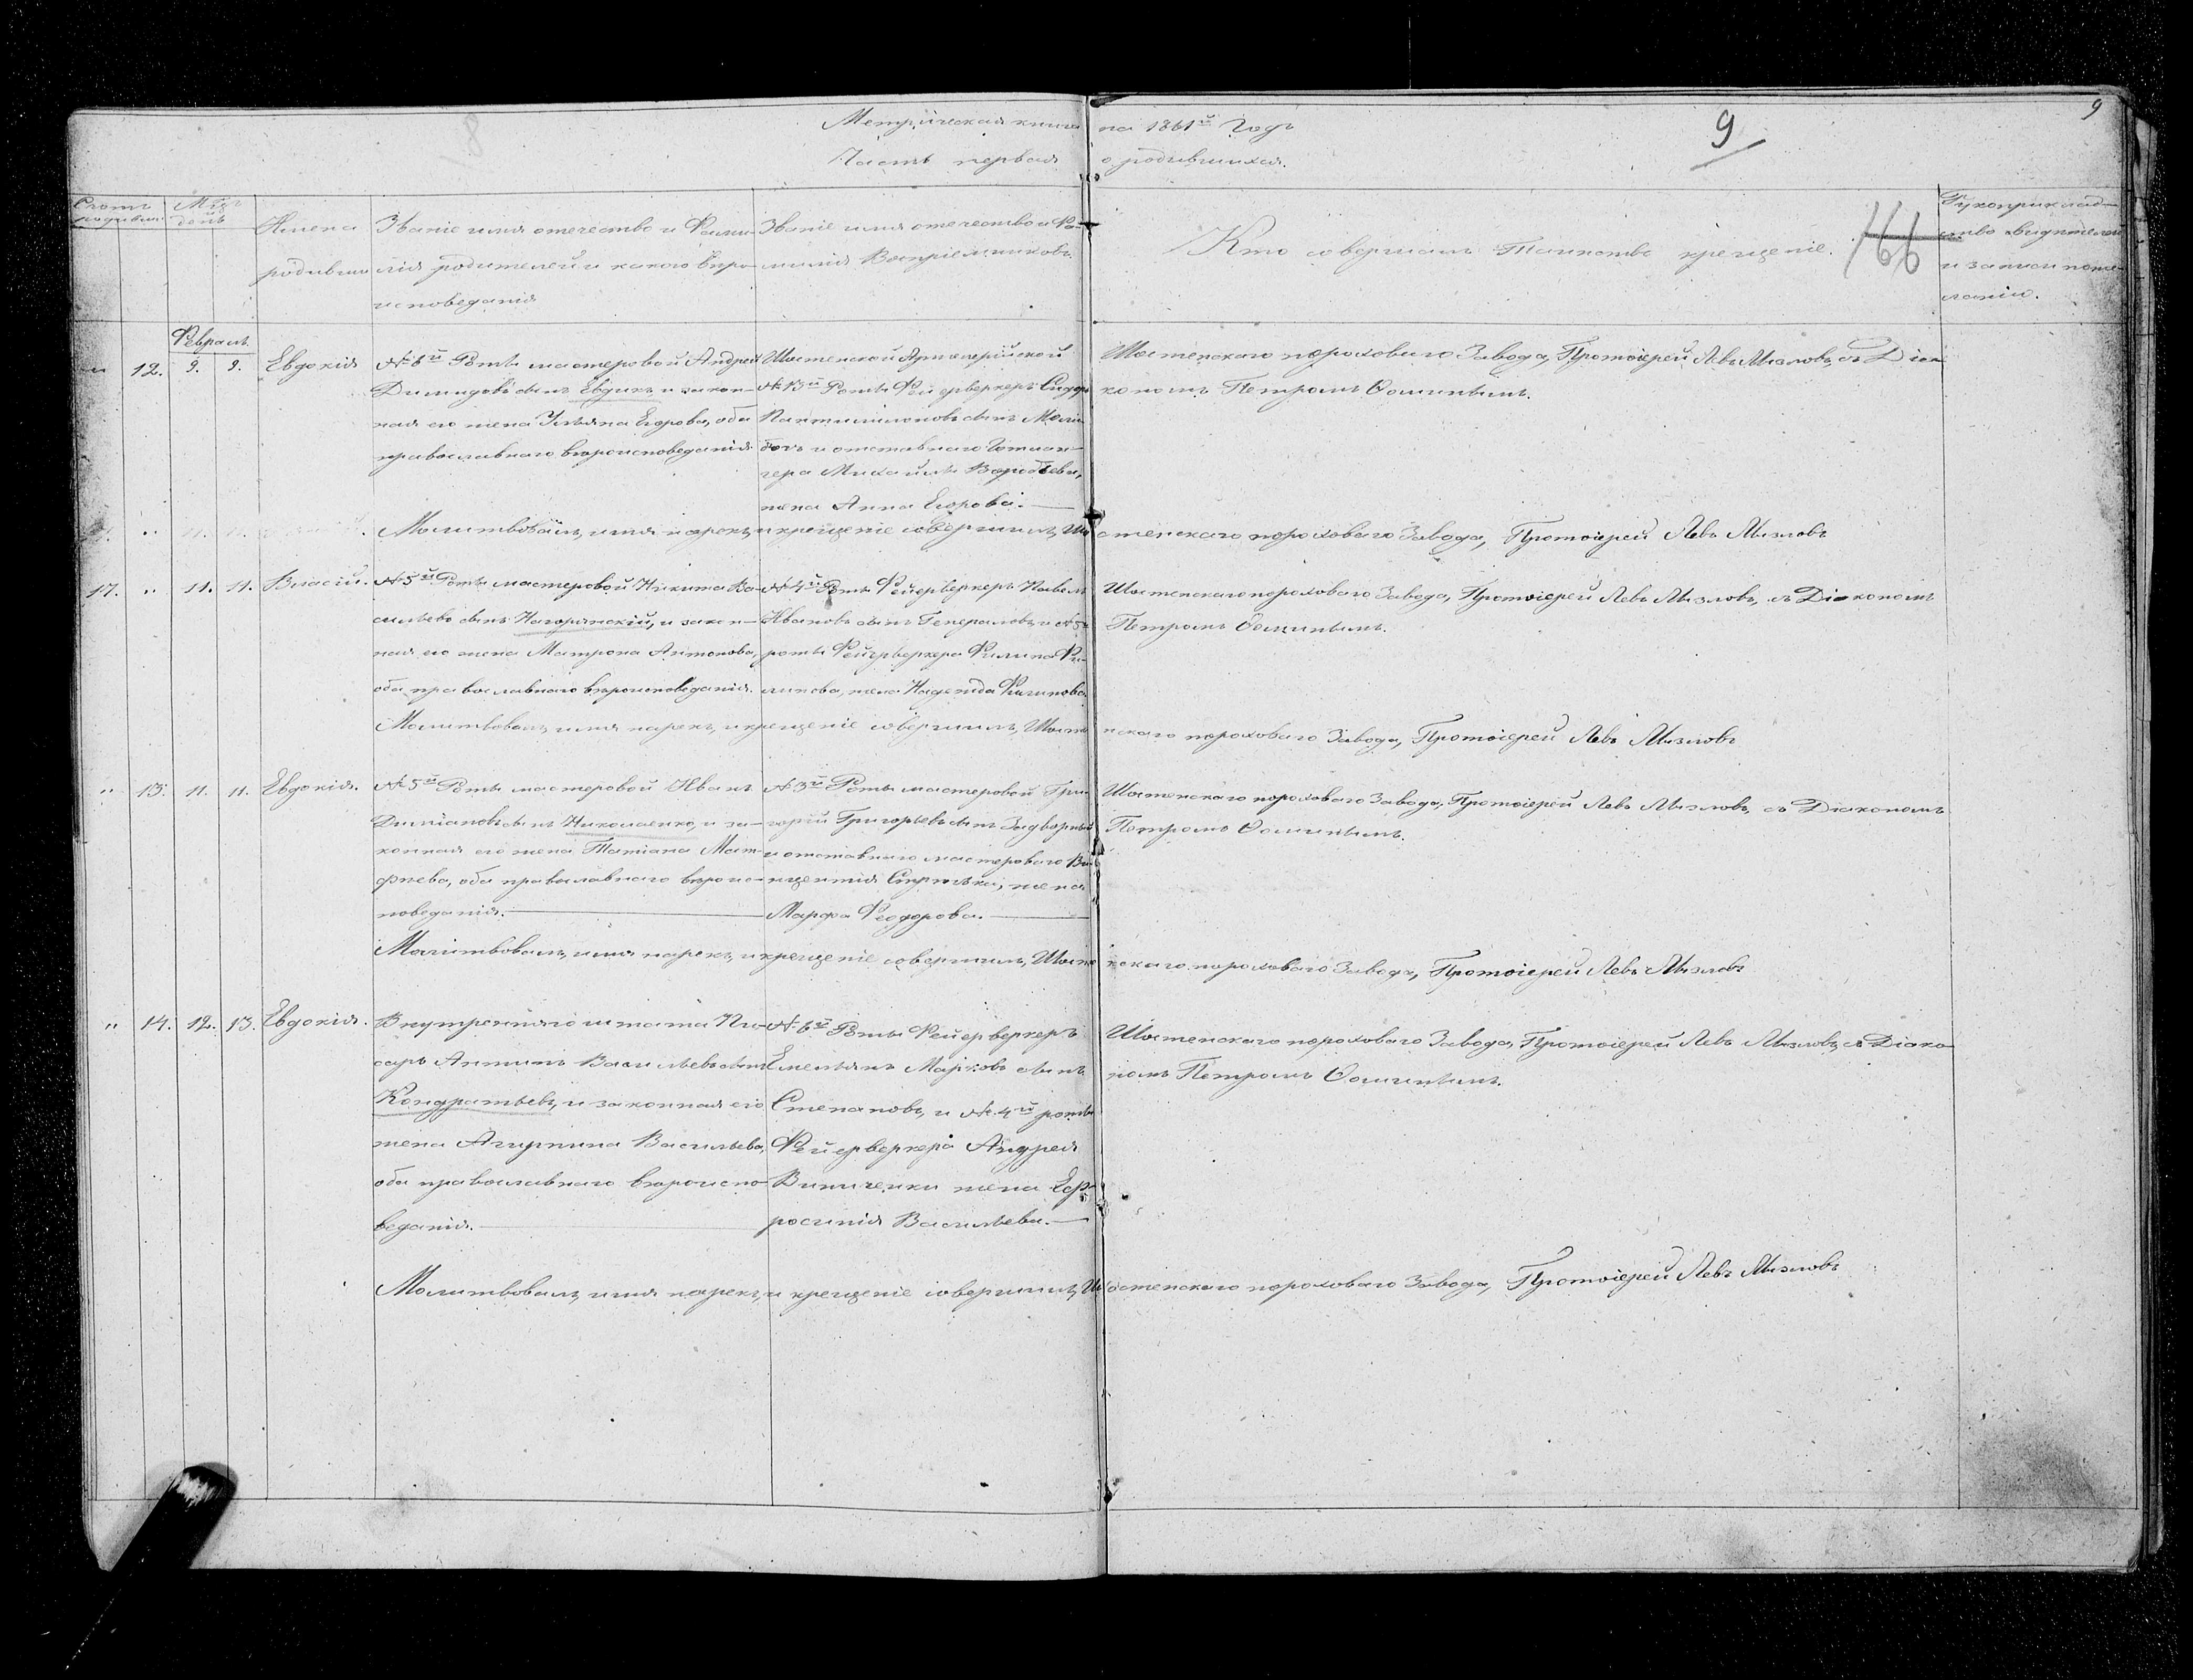 Метрическая книга на 1861й Годъ
Часть первая о родившихся.
9
9
Счетъ родивши
Мцъ
день
Имена
родивши
Званіе имя отечество и Фами-
лія родителей и какого вѣро-
исповеданія
Званіе имя отечество и Фа-
милія Воспріемниковъ
Кто совершалъ Таинство крещеніе.
166
Рукоприклад-
ство свидѣтелей
и записи по же-
ланію.
Февраль
" 12. 9. 9. Евдокія
№ 6й Роты мастеровой Андрей
Димидовъ сынъ Евдикъ, и закон-
ная его жена Ульяна Егорова, оба
православнаго вѣроисповеданія.
Шостенской Артилерійской
№ 13й Роты Фейерверкеръ Сидоръ
Пантилимоновъ сынъ
и отставнаго
Михайлы Воробьева,
жена Анна Егорова.
Шостенскаго пороховаго Завода, Протоіерей Левъ Мизловъ, съ Діа-
кономъ Петромъ Ѳоминымъ.
Молитвовалъ, имя нарекъ, и крещеніе совершилъ, Шостенскаго пороховаго Завода, Протоіерей Левъ Мизловъ
17. " 11. 11. Власій.
№ 5й Роты мастеровой Никита Ва-
сильевъ сынъ Нагорянскій, и закон-
ная его жена Матрона Антонова,
оба православнаго вѣроисповеданія.
№ 4й Роты Фейерверкеръ Павелъ
Ивановъ сынъ Генераловъ, и № 5й
роты Фейерверкера Филипа Фи-
липова, жена Надежда Филипова.
Шостенскаго пороховаго Завода, Протоіерей Левъ Мизловъ, съ Діакономъ
Петромъ Ѳоминымъ.
Молитвовалъ, имя нарекъ, и крещеніе совершилъ, Шостенскаго пороховаго Завода, Протоіерей Левъ Мизловъ
" 13. 11. 11. Евдокія.
№ 5й Роты мастеровой Иванъ
Диміановъ сынъ Николаенко, и за-
конная его жена Татіана Мат-
фѣева, оба православнаго вѣроис-
поведанія.
№ 3й Роты мастеровой Гри-
горій Григорьевъ сынъ Задворный
и отставнаго мастероваго Ви-
кентія жена
Марфа Феодорова.
Шостенскаго пороховаго Завода, Протоіерей Левъ Мизловъ, съ Діакономъ
Петромъ Ѳоминымъ.
Молитвовалъ, имя нарекъ, и крещеніе совершилъ, Шостенскаго пороховаго Завода, Протоіерей Левъ Мизловъ
" 14. 12. 13. Евдокія.
Внутренняго штата Пи-
сарь Антипъ Васильевъ сынъ
Кондратьевъ, и законная его
жена Агрипина Васильева,
оба православнаго вѣроиспо-
веданія.
№ 6й Роты Фейерверкеръ
Емельянъ Марковъ сынъ
Степановъ, и № 4й роты
Фейерверкера Андрея
Виниченки жена Еф-
росинія Васильева.
Шостенскаго пороховаго Завода, Протоіерей Левъ Мизловъ, съ Діако-
номъ Петромъ Ѳоминымъ.
Молитвовалъ, имя нарекъ, и крещеніе совершилъ, Шостенскаго пороховаго Завода, Протоіерей Левъ Мизловъ